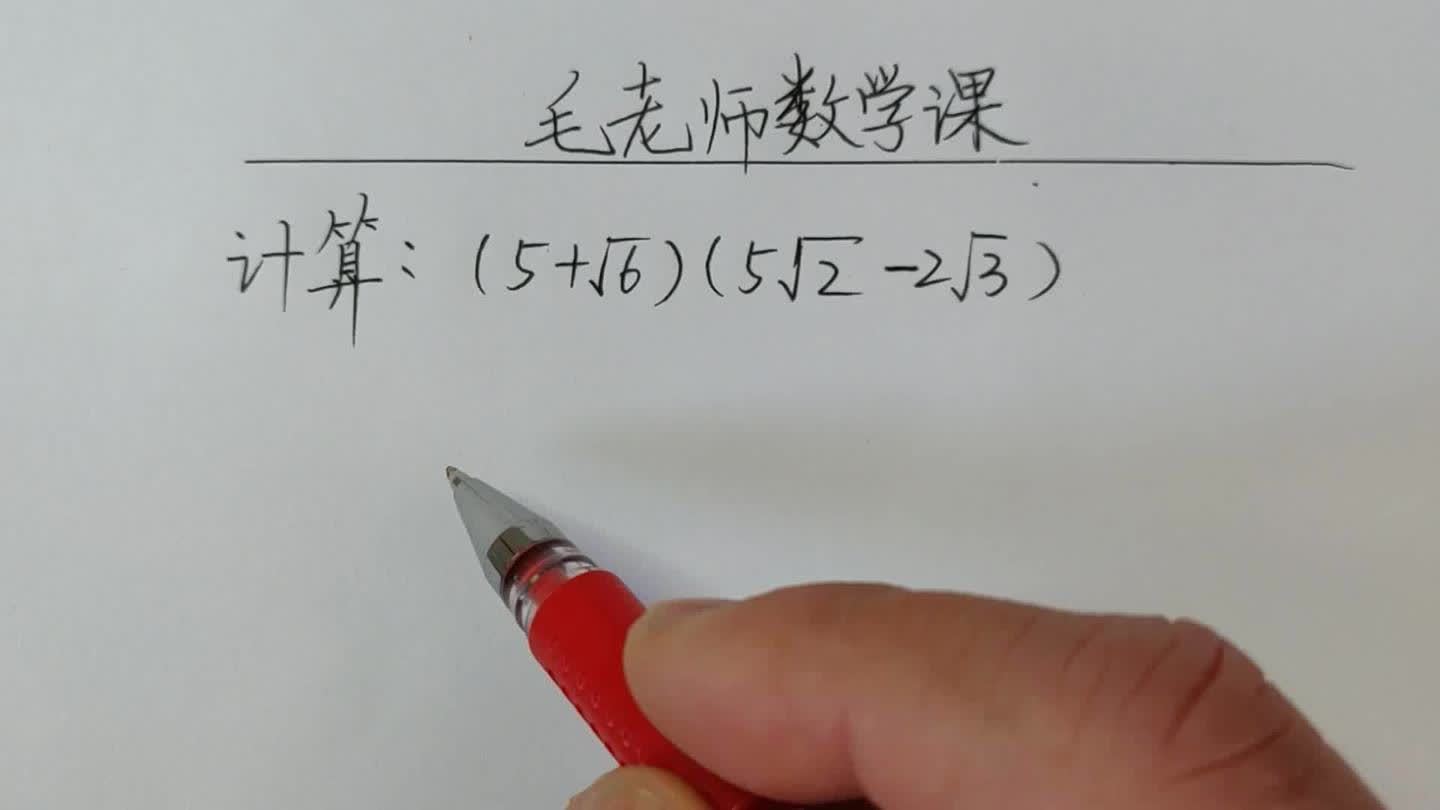 毛老师数学课
计算：(5+√6)(5√2-2√3)